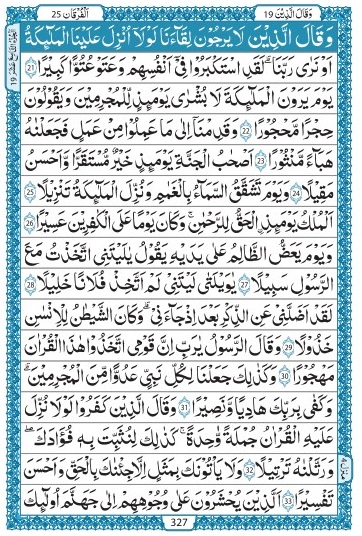 وَقَالَ الَّذِيْنَ 19
اَلْفُرْقَان 25
وَقَالَ الَّذِيْنَ لَا يَرْجُوْنَ لِقَآءَنَا لَوْلَاۤ اُنْزِلَ عَلَيْنَا الْمَلٰٓئِكَةُ
اَوْ نَرٰى رَبَّنَا ؕ لَقَدِ اسْتَكْبَرُوْا فِیْۤ اَنْفُسِهِمْ وَعَتَوْ عُتُوًّا كَبِيْرًا ﴿21﴾
يَوْمَ يَرَوْنَ الْمَلٰٓئِكَةَ لَا بُشْرٰى يَوْمَئِذٍ لِّلْمُجْرِمِيْنَ وَيَقُوْلُوْنَ
حِجْرًا مَّحْجُوْرًا ﴿22﴾ وَقَدِمْنَاۤ اِلٰى مَا عَمِلُوْا مِنْ عَمَلٍ فَجَعَلْنٰهُ
هَبَآءً مَّنْثُوْرًا ﴿23﴾ اَصْحٰبُ الْجَنَّةِ يَوْمَئِذٍ خَيْرٌ مُّسْتَقَرًّا وَّاَحْسَنُ
مَقِيْلًا ﴿24﴾ وَيَوْمَ تَشَقَّقُ السَّمَآءُ بِالْغَمَامِ وَنُزِّلَ الْمَلٰٓئِكَةُ تَنْزِيْلًا ﴿25﴾
اَلْمُلْكُ يَوْمَئِذِ ۨالْحَقُّ لِلرَّحْمٰنِ ؕ وَكَانَ يَوْمًا عَلَى الْكٰفِرِيْنَ عَسِيْرًا ﴿26﴾
وَيَوْمَ يَعَضُّ الظَّالِمُ عَلٰى يَدَيْهِ يَقُوْلُ يٰلَيْتَنِی اتَّخَذْتُ مَعَ
الرَّسُوْلِ سَبِيْلًا ﴿27﴾ يٰوَيْلَتٰى لَيْتَنِیْ لَمْ اَتَّخِذْ فُلَانًا خَلِيْلًا ﴿28﴾
لَقَدْ اَضَلَّنِیْ عَنِ الذِّكْرِ بَعْدَ اِذْ جَآءَنِیْ ؕ وَكَانَ الشَّيْطٰنُ لِلْاِنْسَانِ
خَذُوْلًا ﴿29﴾ وَقَالَ الرَّسُوْلُ يٰرَبِّ اِنَّ قَوْمِی اتَّخَذُوْا هٰذَا الْقُرْاٰنَ
مَهْجُوْرًا ﴿30﴾ وَكَذٰلِكَ جَعَلْنَا لِكُلِّ نَبِیٍّ عَدُوًّا مِّنَ الْمُجْرِمِيْنَ ؕ
وَكَفٰى بِرَبِّكَ هَادِيًا وَّنَصِيْرًا ﴿31﴾ وَقَالَ الَّذِيْنَ كَفَرُوْا لَوْلَا نُزِّلَ
عَلَيْهِ الْقُرْاٰنُ جُمْلَةً وَّاحِدَةً ۛ كَذٰلِكَ ۛ لِنُثَبِّتَ بِهٖ فُؤَادَكَ
وَرَتَّلْنٰهُ تَرْتِيْلًا ﴿32﴾ وَلَا يَاْتُوْنَكَ بِمَثَلٍ اِلَّا جِئْنٰكَ بِالْحَقِّ وَاَحْسَنَ
تَفْسِيْرًا ﴿33﴾ اَلَّذِيْنَ يُحْشَرُوْنَ عَلٰى وُجُوْهِهِمْ اِلٰى جَهَنَّمَ اُولٰٓئِكَ
327